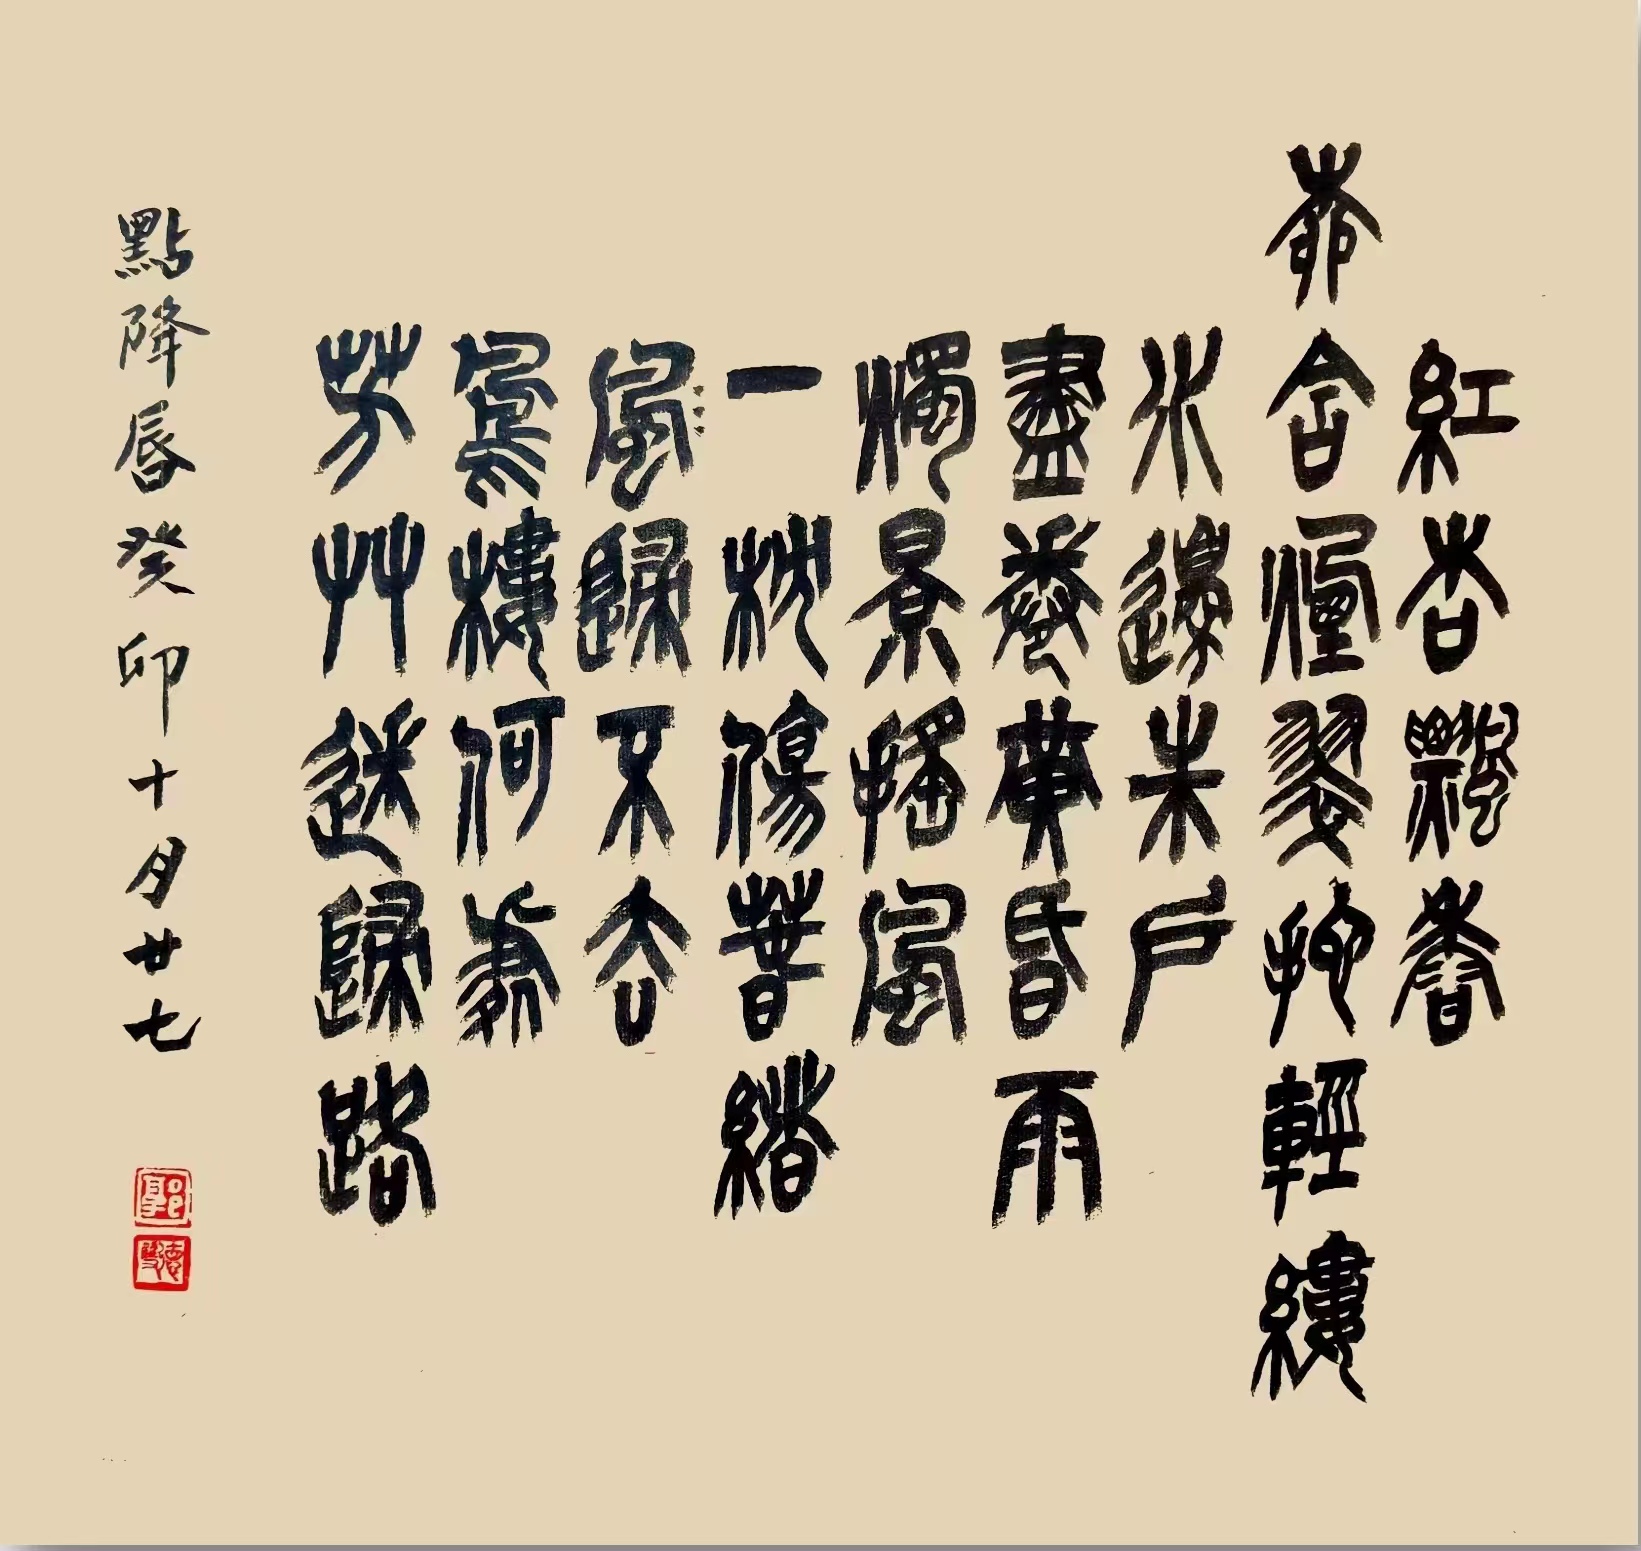 紅杏飄香
柳含煙翠拖輕縷
水邊朱戶
盡卷黃昏雨
燭景搖風
一枕傷春緒
風歸不去
鳳樓何處
芳艸迷歸路
點降唇癸卯十月廿七
郭